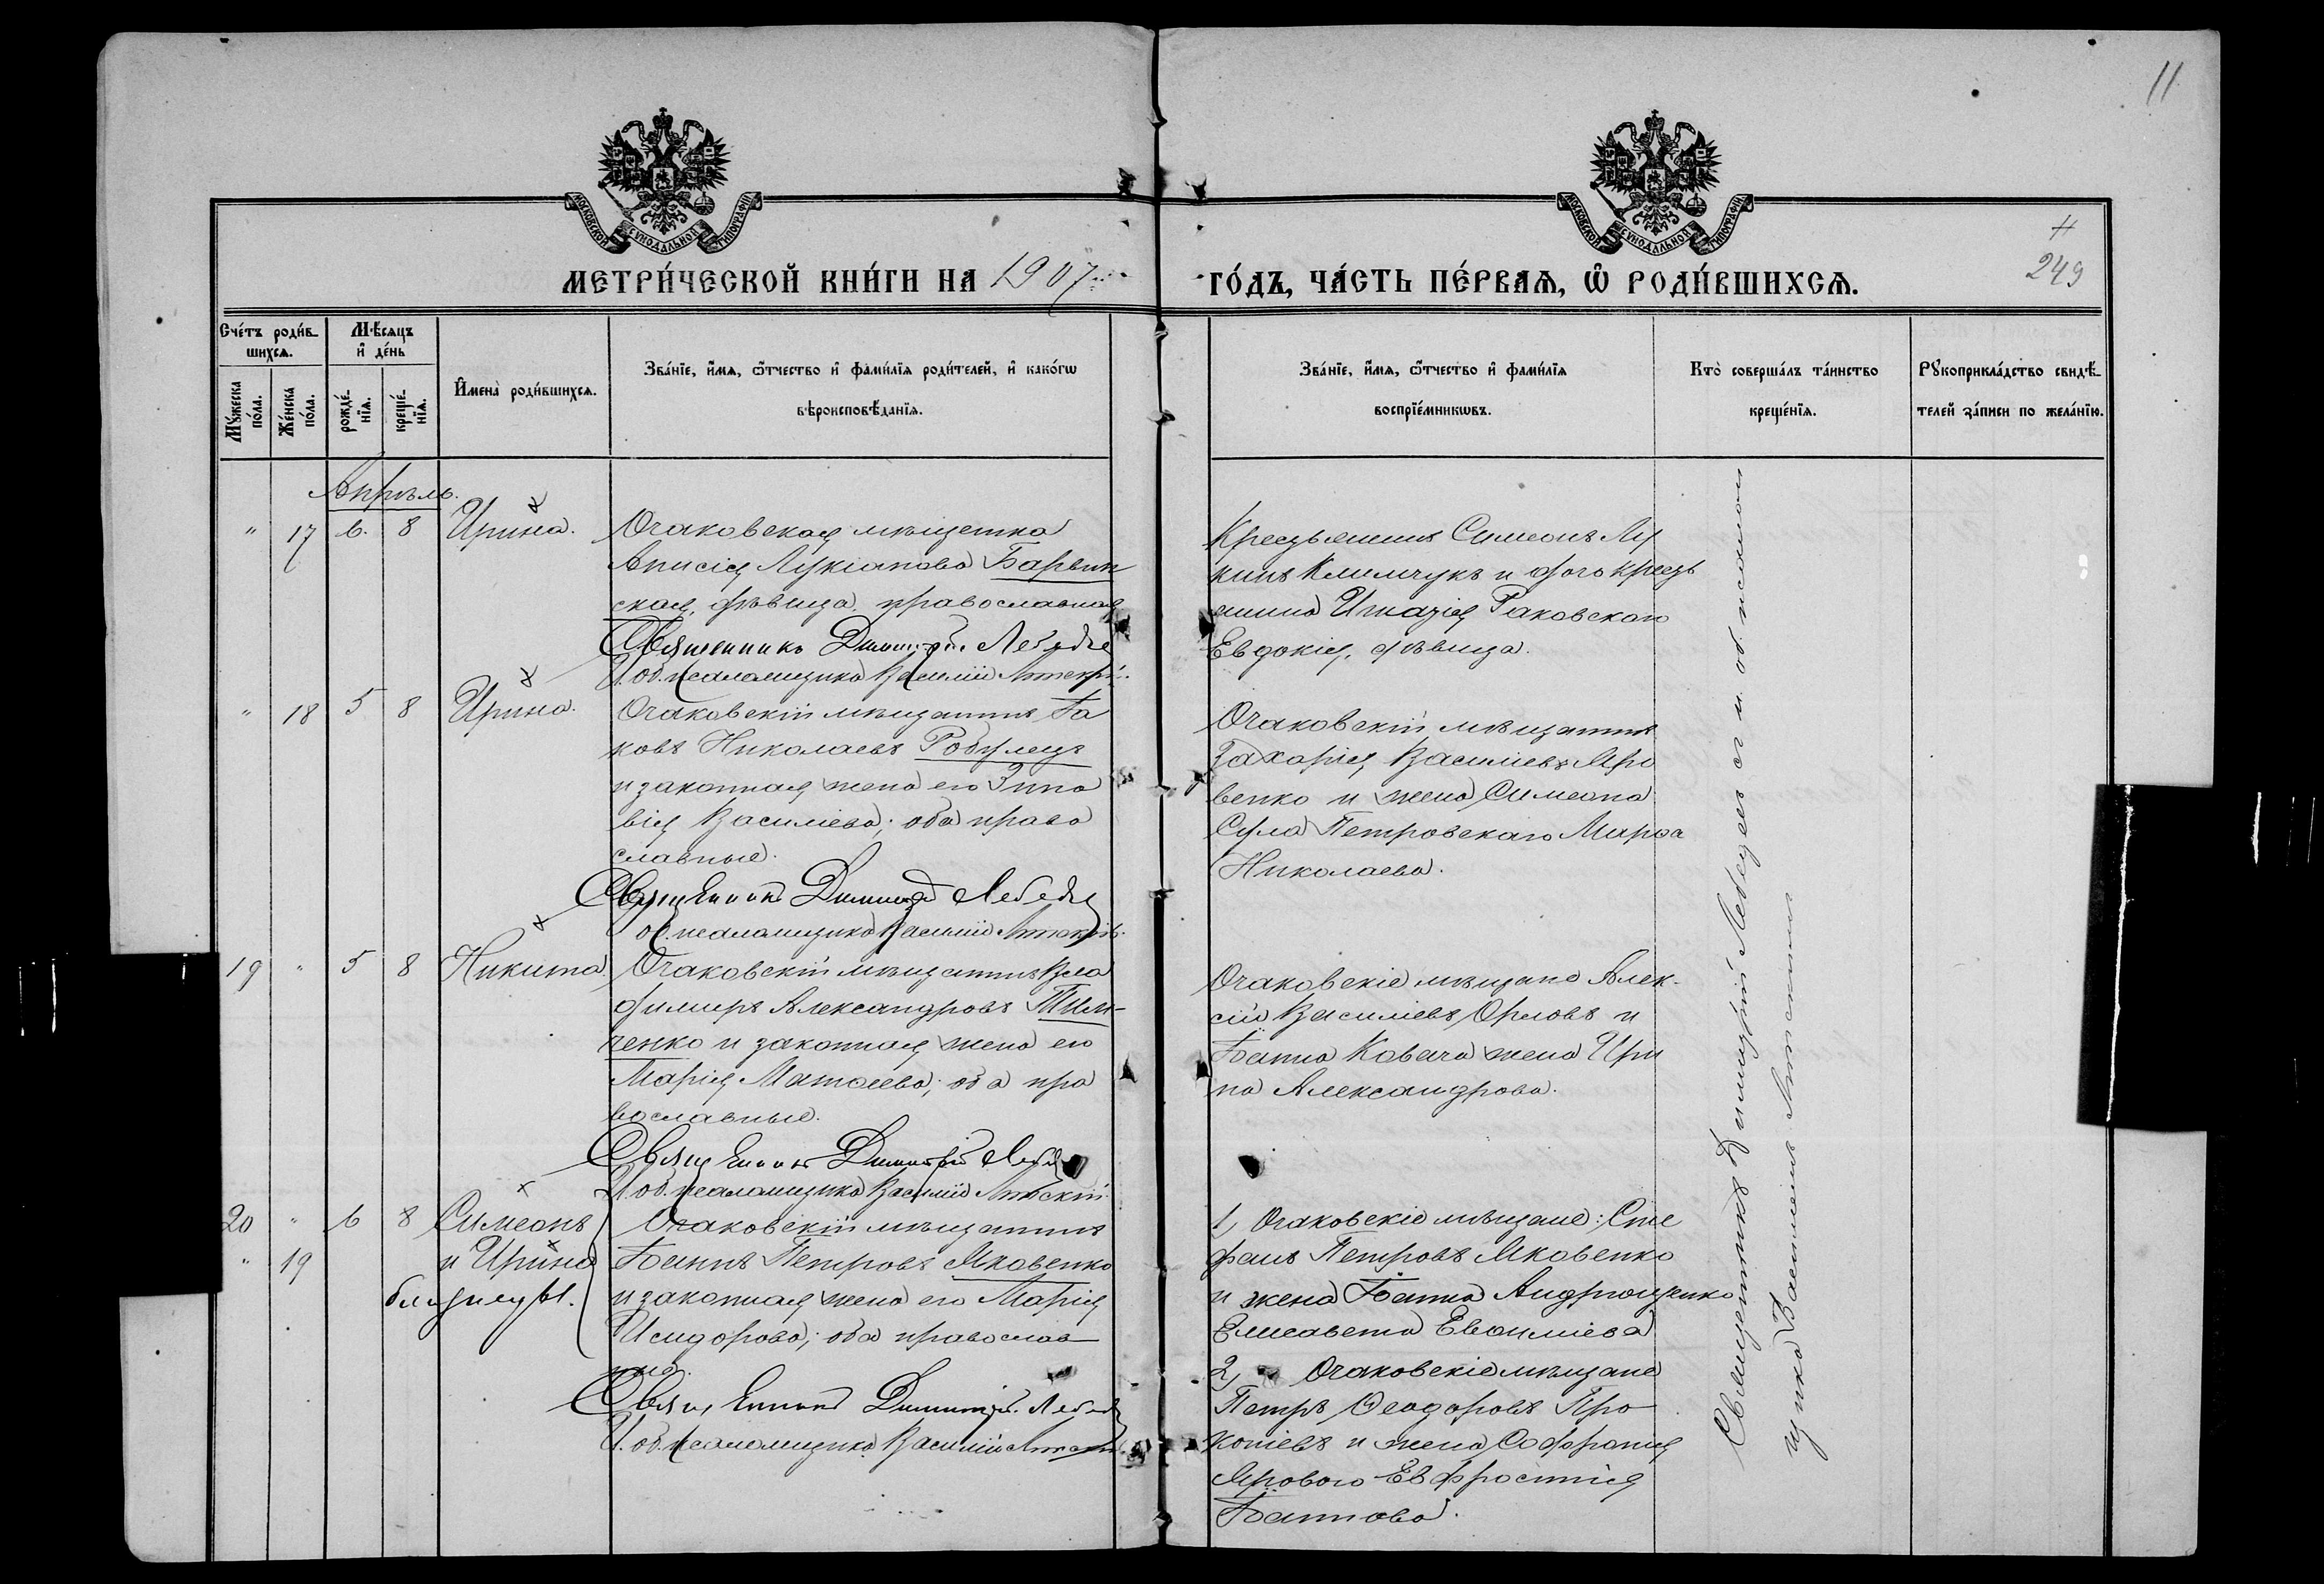 11
МОСКОВСКОЙ СѴНОДАЛЬНОЙ ТИПОГРАФІИ
МОСКОВСКОЙ СѴНОДАЛЬНОЙ ТИПОГРАФІИ
МЕТРИ́ЧЕСКОЙ КНИ́ГИ НА 1907
ГО́ДЪ, ЧА́СТЬ ПЕ́РВАѦ, Ѡ҆ РОДИ́ВШИХСѦ.
249
Сче́тъ роди́в-
шихсѧ.
Мꙋ́жеска
по́ла.
Же́нска
по́ла.
Мѣ́сѧцъ
и҆ де́нь
рожде́-
нїѧ.
креще́-
нїѧ.
И҆мена̀ роди́вшихсѧ.
Зва́нїе, и҆́мѧ, ѻ҆́тчество и҆ фами́лїѧ роди́телей, и҆ како́гѡ
вѣроисповѣ́данїѧ.
Зва́нїе, и҆́мѧ, ѻ҆́тчество и҆ фами́лїѧ
воспрїе́мникѡвъ.
Кто̀ соверша́лъ та́инство
креще́нїѧ.
Рꙋкоприкла́дство свидѣ́-
телей за́писи по жела́нїю.
Апрѣль.
" 17 6. 8 Ирина.
Очаковская мѣщанка
Анисія Лукіанова Барвин
ская, дѣвица, православная
Священникъ Димитрій Лебедев
И. об. псаломщика Василій
Крестьянинъ Симеонъ Лу
кинъ Климчукъ и дочь кресть
янина Игнатія Раковскаго
Евдокія, дѣвица.
" 18 5 8 Ирина.
Очаковскій мѣщанинъ Іа
ковъ Николаевъ Робулецъ
и законная жена его Зино
вія Василіева; оба право
славные.
Священникъ Димитрій Лебедев
об. псаломщика Василій
Очаковскій мѣщанинъ
Захарія Василіевъ Яро
венко и жена Симеона
Сула Петровскаго Марѳа
Николаева.
19 " 5 8 Никита
Очаковскій мѣщанинъ Вла
димиръ Александровъ Тим-
ченко и законная жена его
Марія Матѳеева; оба пра
вославные.
Священникъ Димитрій
И. об. псаломщика Василій
Очаковскіе мѣщане Алек-
сій Василіевъ Орловъ и
Іоанна Ковача жена Ири
на Александрова.
20 " 6 8 Симеонъ
" 19 и Ирина
близнецы.
Очаковскій мѣщанинъ
Іоаннъ Петровъ Яковенко
и законная жена его Марія
Исидорова; оба православ
ные.
Священникъ Димитрій Лебедев
И. об. псаломщика Василій
1, Очаковскіе мѣщане: Сте
фанъ Петровъ Яковенко
и жена Іоанна Андрющенко
Елисавета Евѳиміева
2, Очаковскіе мѣщане
Петръ Ѳеодоровъ Про
копіевъ и жена Софронія
Ярового Евфросинія
Іоаннова.
Священникъ Димитрій Лебедев съ и. об. псалом
щика Василіемъ